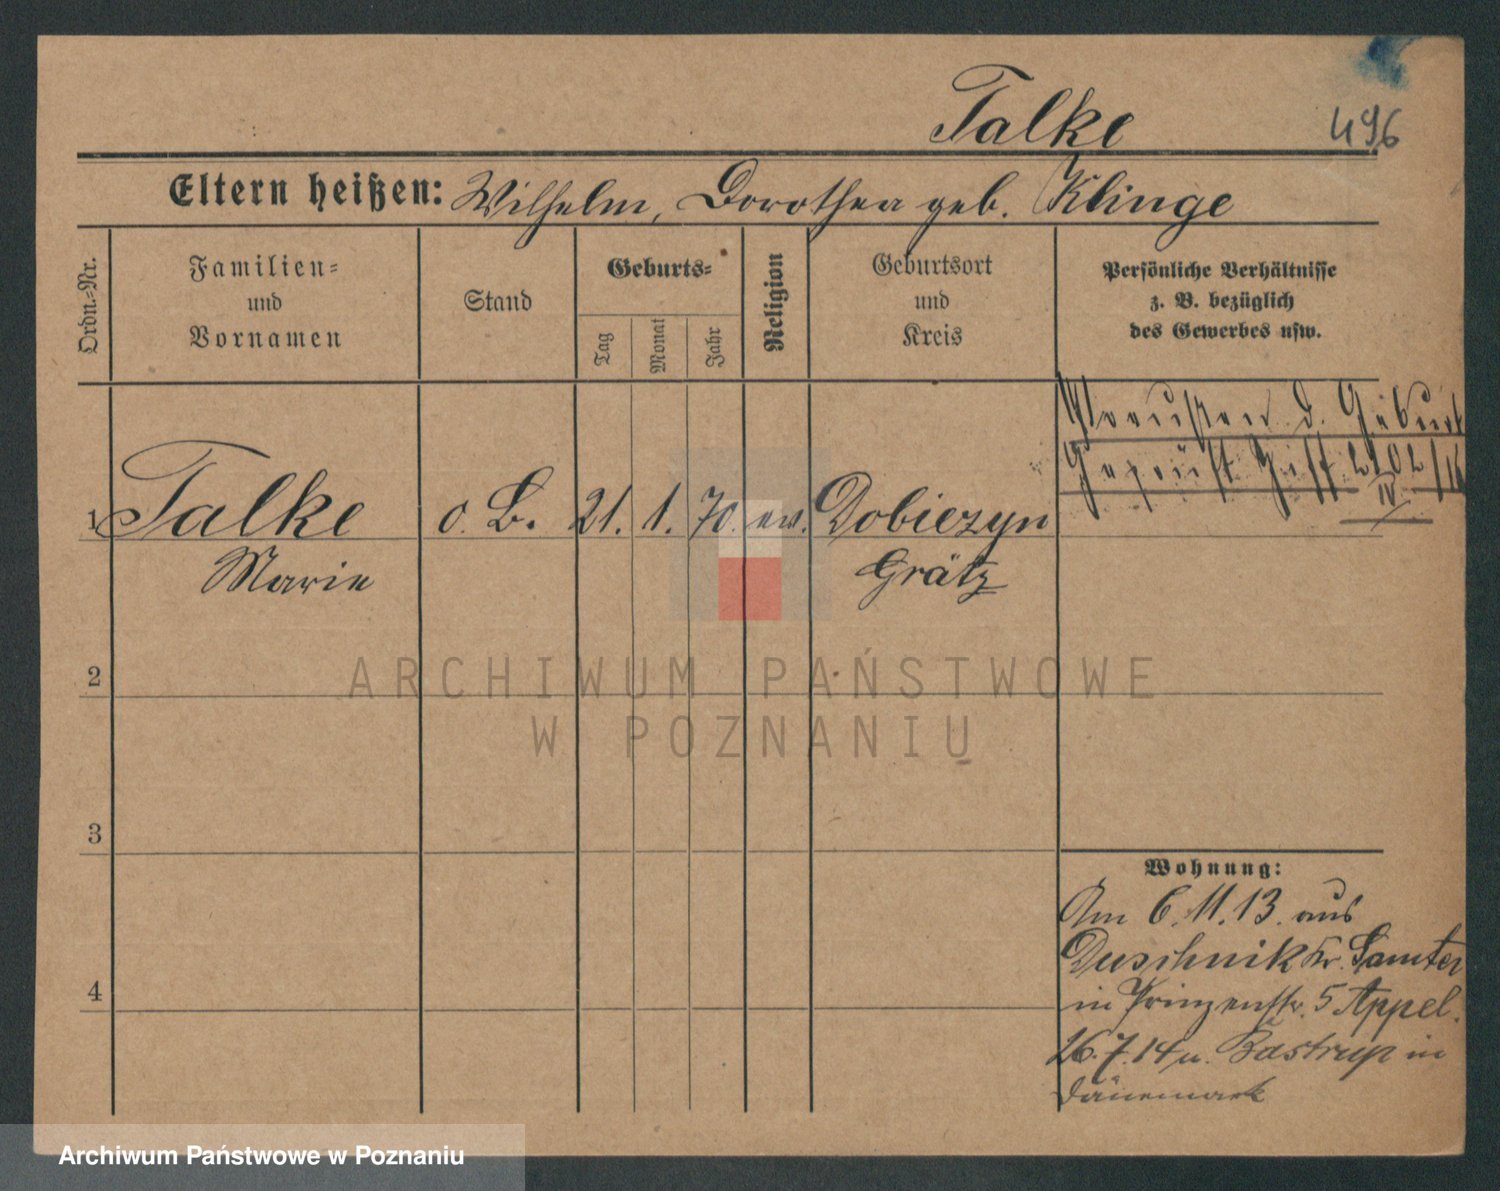 Talke
496
Eltern heißen: Wilhelm, Dorothea geb. Klinge
Ordn.-Nr.
Familien-
und
Vornamen
Stand
Geburts-
Tag
Monat
Jahr
Religion
Geburtsort
und
Kreis
Persönliche Verhältnisse
z. B. bezüglich
des Gewerbes usw.
Preussen d. Geburt
Geprüft Heft
IV
1 Talke o. B. 21. 1. 70. ev. Dobiezyn
Marie Grätz
2
3
4
Wohnung:
Am 6.11.13. aus
Duschnik Kr. Samter
in Prinzenstr. 5 Appel.
26.7.14 n. Bastrup in
Dänemark
ARCHIWUM PAŃSTWOWE
W POZNANIU
Archiwum Państwowe w Poznaniu